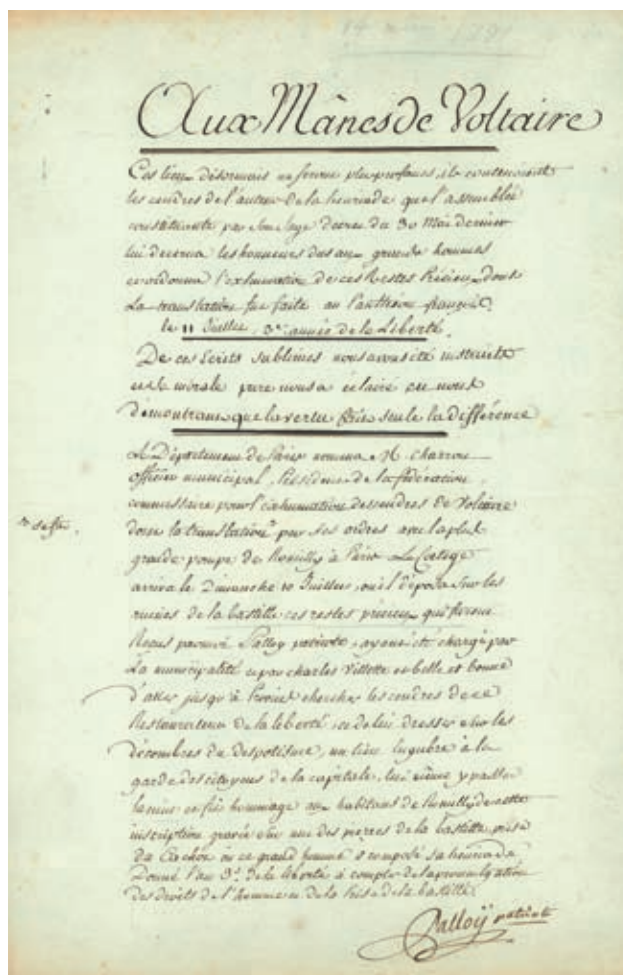 Aux Mânes de Voltaire
Ces lieux désormais ne seront plus profanes, ils contenoient
les cendres de l'auteur de la henriade que l'assemblée
constituante par son sage decret du 30 Mai dernier
lui decerna les honneurs dus aux grands hommes
et ordonna l'exhumation de ces Restes Précieux dont
La translation fut faite au Pantheon français
le 11 Juillet 3e année de la Liberté.
De ces Ecrits sublimes nous avons été instruits
et sa morale pure nous a éclairé en nous
démontrant que la vertu fait seule la différence
Le Département de Paris nomma M. charron
officier municipal, Président de la fédération,
commissaire pour l'exhumation des cendres de Voltaire
dont la translation par ses ordres avec la plus
grande pompe de Romilly à Paris Le Cortege
arriva le Dimanche 10 Juillet, où l'déposa sur les
ruines de la bastille ces restes précieux qui furent
Reçus par moi Palloy patriote, ayant été chargé par
La municipalité et par charles Villette et belle et bonne
d'aller jusqu'à chercher les cendres de ce
Restaurateur de la liberté, et de lui dresser sur les
décombres du despotisme, un lieu lugubre à la
garde des citoyens de la capitale, lui même y passa
la nuit et fit hommage aux habitans de Romilly de cette
inscription gravée sur une des pierres de la bastille
Du Cachot où ce grand homme a composé sa henriade
Donné l'an 3e. de la liberté à compter de la promulgation
des droits de l'homme et de la Prise de la bastille
Palloÿ patriote